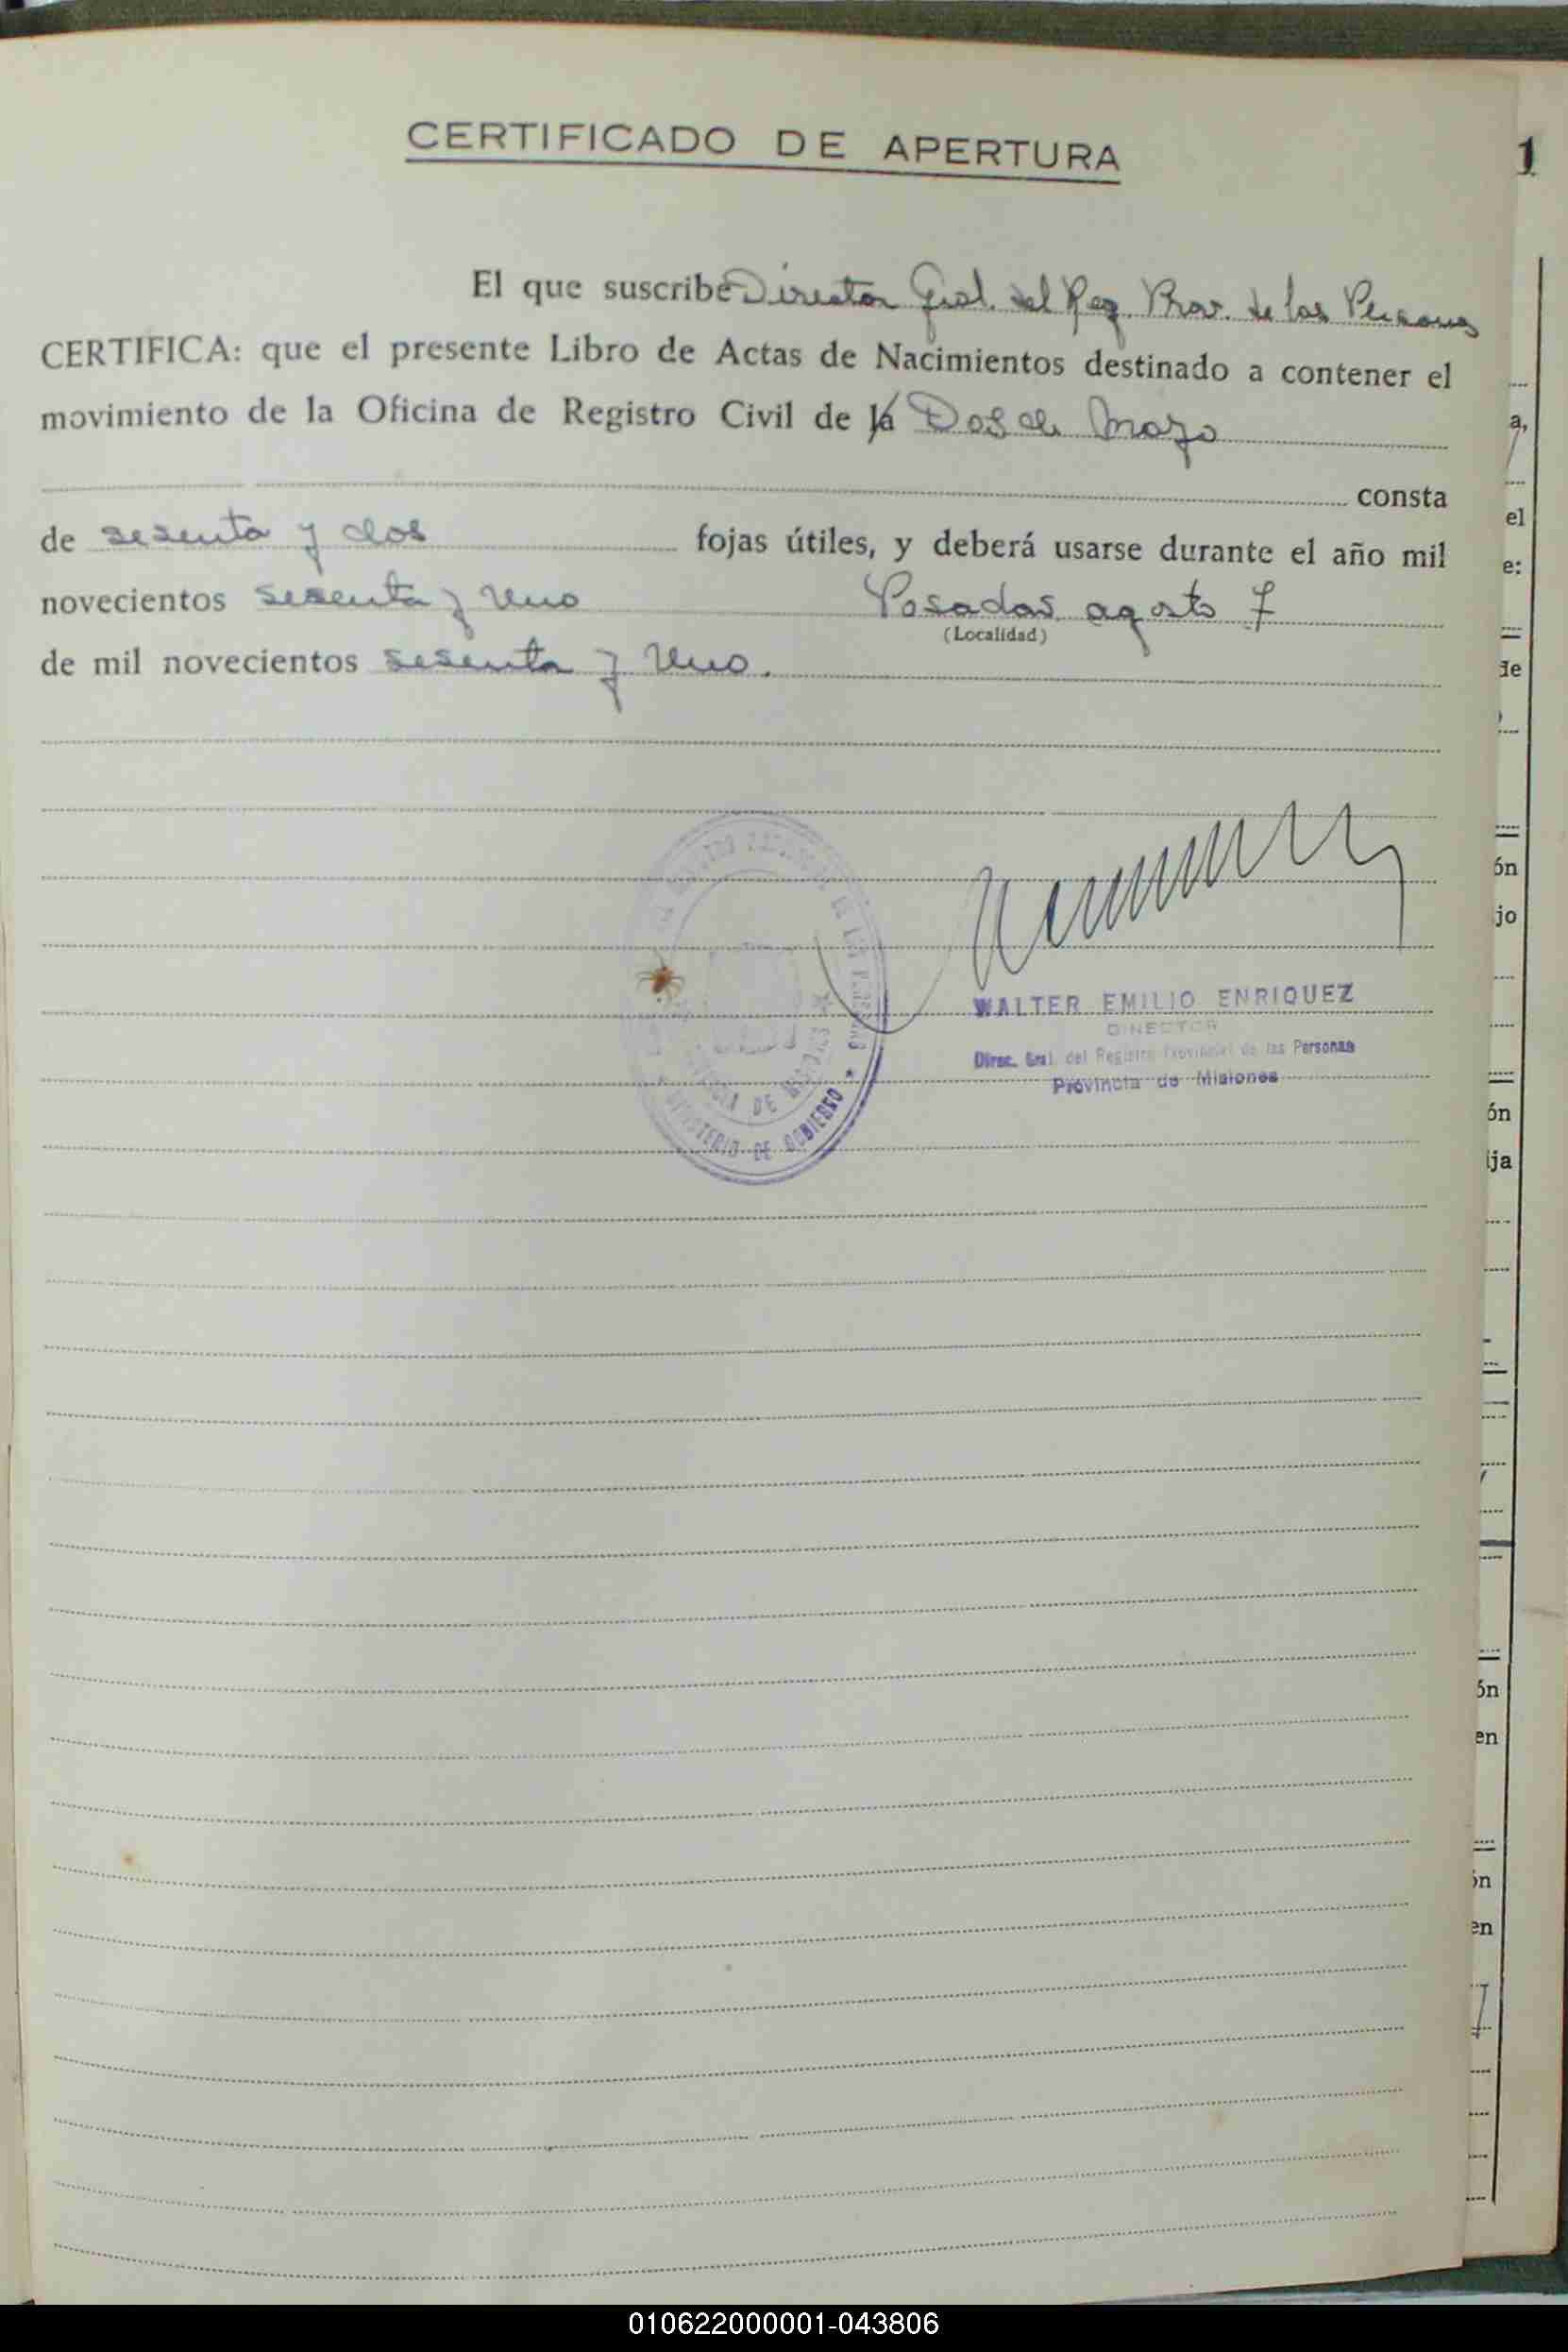 CERTIFICADO DE APERTURA
1
El que suscribe Director Gral. del Reg. Prov. de las Personas
CERTIFICA: que el presente Libro de Actas de Nacimientos destinado a contener el
movimiento de la Oficina de Registro Civil de la Dos de Mayo
consta
de sesenta y dos fojas útiles, y deberá usarse durante el año mil
novecientos sesenta y uno Posadas, agosto 7
(Localidad)
de mil novecientos sesenta y uno.
WALTER EMILIO ENRIQUEZ
DIRECTOR
Direc. Gral. del Registro Provincial de las Personas
Provincia de Misiones
DE LAS PERSONAS
PROVINCIA DE MISIONES
MINISTERIO DE GOBIERNO
a,
el
e:
de
ón
jo
ón
ija
ón
en
ón
en
010622000001-043806